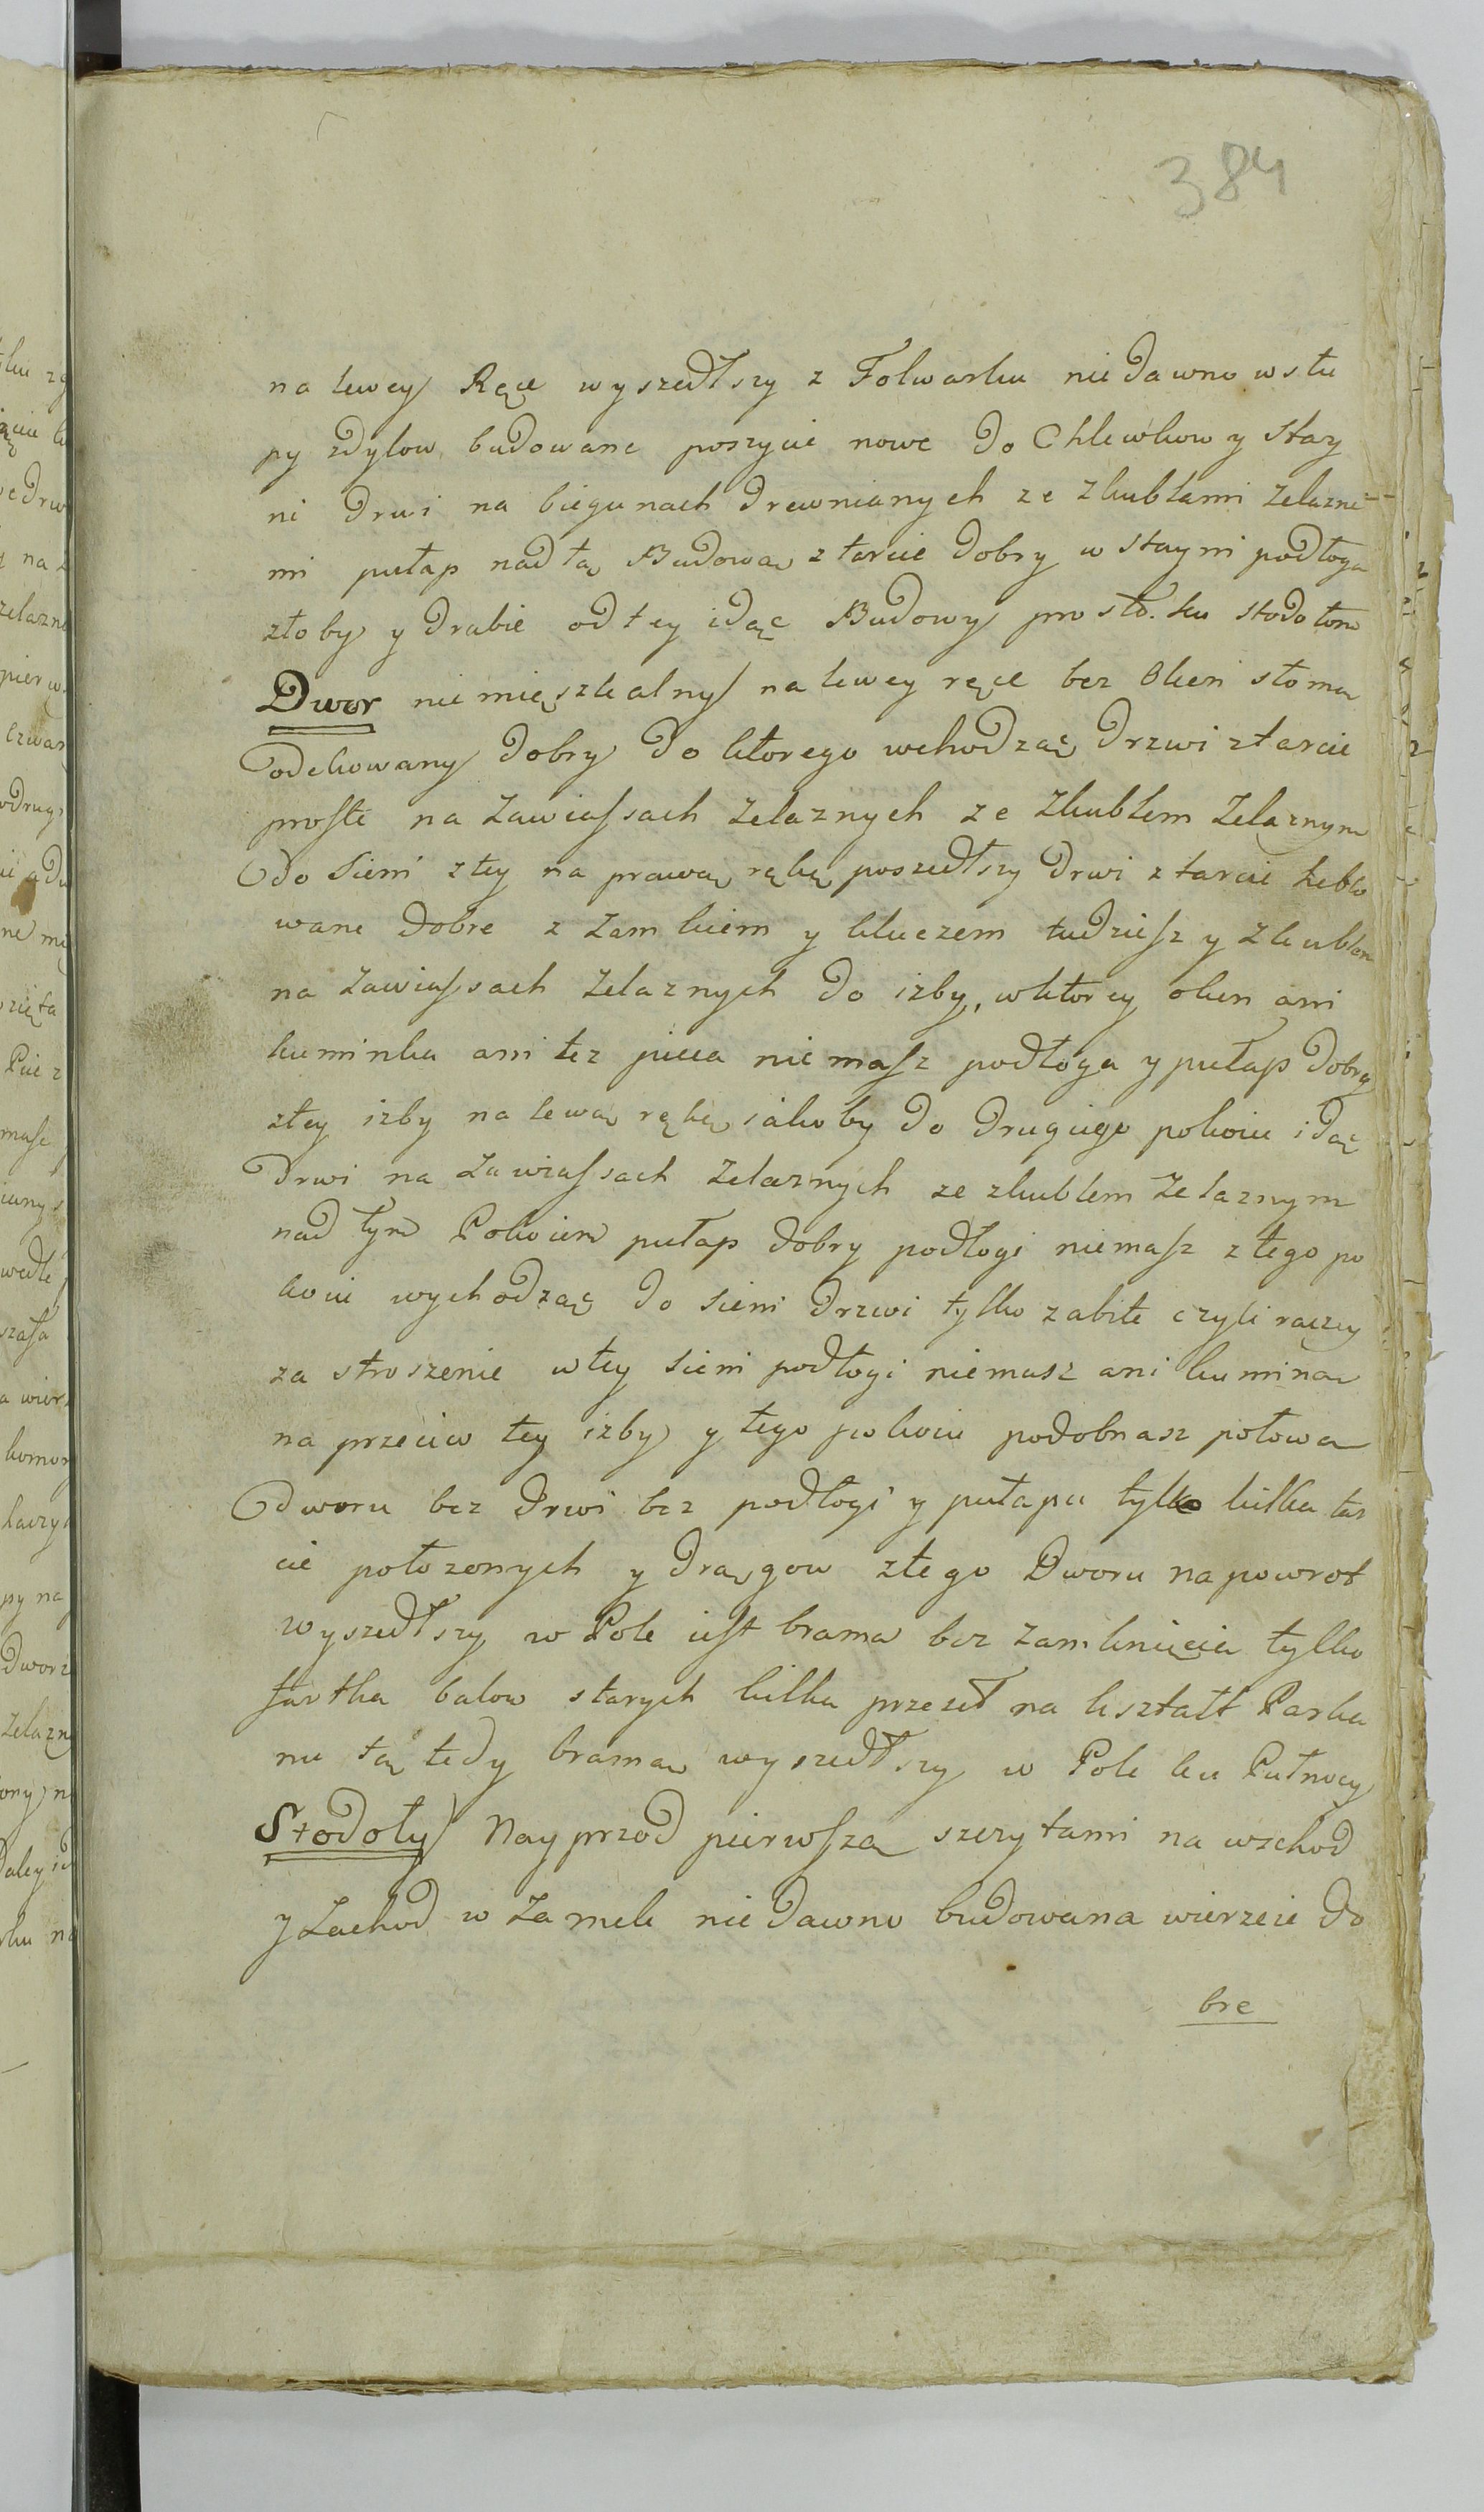 384
na lewey Ręce wyszedłszy z Folwarku niedawno wstu
py zdylow budowane poszycie nowe do Chlewkow y Stay
ni drwi na biegunach drewnianych ze zkublami żelazne
mi pułap nad tą Budową z tarcic dobry w stayni podłoga
złoby y drabie od tey idąc Budowy prosto ku stodołom
Dwor niemięszkalny na lewey ręce bez Okien słomą
odekowany dobry do ktorego wchodząc drzwi ztarcic
proste na zawiassach żelaznych ze zkublem żelaznym
do Sieni z tey na prawą rękę poszedłszy drwi z tarcic heblo
wane dobre z zamkiem y kluczem tudziesz y zkublem
na zawiassach żelaznych do izby, wktorey okien ani
kuminka ani tez pieca nie masz podłoga y pułap dobry
ztey izby na lewą rękę iakoby do drugiego pokoiu idąc
drwi na zawiassach żelaznych ze zkublem żelaznym
nad tym Pokoiem pułap dobry podłogi niemasz z tego po
koiu wychodząc do sieni drzwi tylko zabite czyli raczey
za stroszenie w tey sieni podłogi niemasz ani kumina
na przeciw tey izby y tego pokoiu podobnasz połowa
dworu bez drwi bez podłogi y pułapu tylko kilka tar
cic położonych y drągow ztego Dworu na powrot
wyszedłszy w Pole iest brama bez zamknięcia tylko
fartka balow starych kilka przezet na kształt Parka
nu tą tedy bramą wyszedłszy w Pole ku Pułnocy
Stodoły Nayprzod pierwsza szczytami na wschod
y Zachod w Zamek niedawno budowana wierzeie do
bre